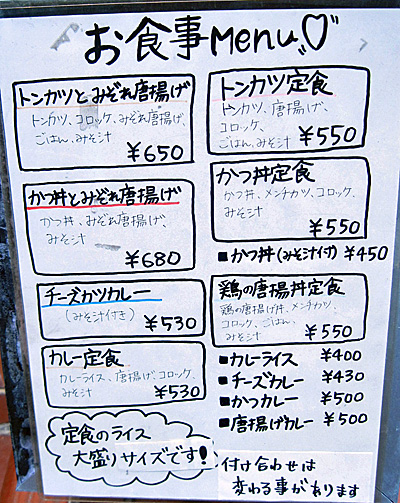 お食事Menu♡
トンカツとみぞれ唐揚げ
トンカツ、コロッケ、みぞれ唐揚げ、
ごはん、みそ汁
¥650
かつ丼とみぞれ唐揚げ
かつ丼、みぞれ唐揚げ、
みそ汁
¥680
チーズカツカレー
(みそ汁付き) ¥530
カレー定食
カレーライス、唐揚げ、コロッケ、
みそ汁 ¥530
定食のライス
大盛りサイズです!
トンカツ定食
トンカツ、唐揚げ、
コロッケ、
ごはん、みそ汁 ¥550
かつ丼定食
かつ丼、メンチカツ、コロッケ、
みそ汁
¥550
■かつ丼(みそ汁付) ¥450
鶏の唐揚丼定食
鶏の唐揚げ丼、メンチカツ、
コロッケ、ごはん、
みそ汁 ¥550
■カレーライス ¥400
■チーズカレー ¥430
■かつカレー ¥500
■唐揚げカレー ¥500
付け合わせは
変わる事があります